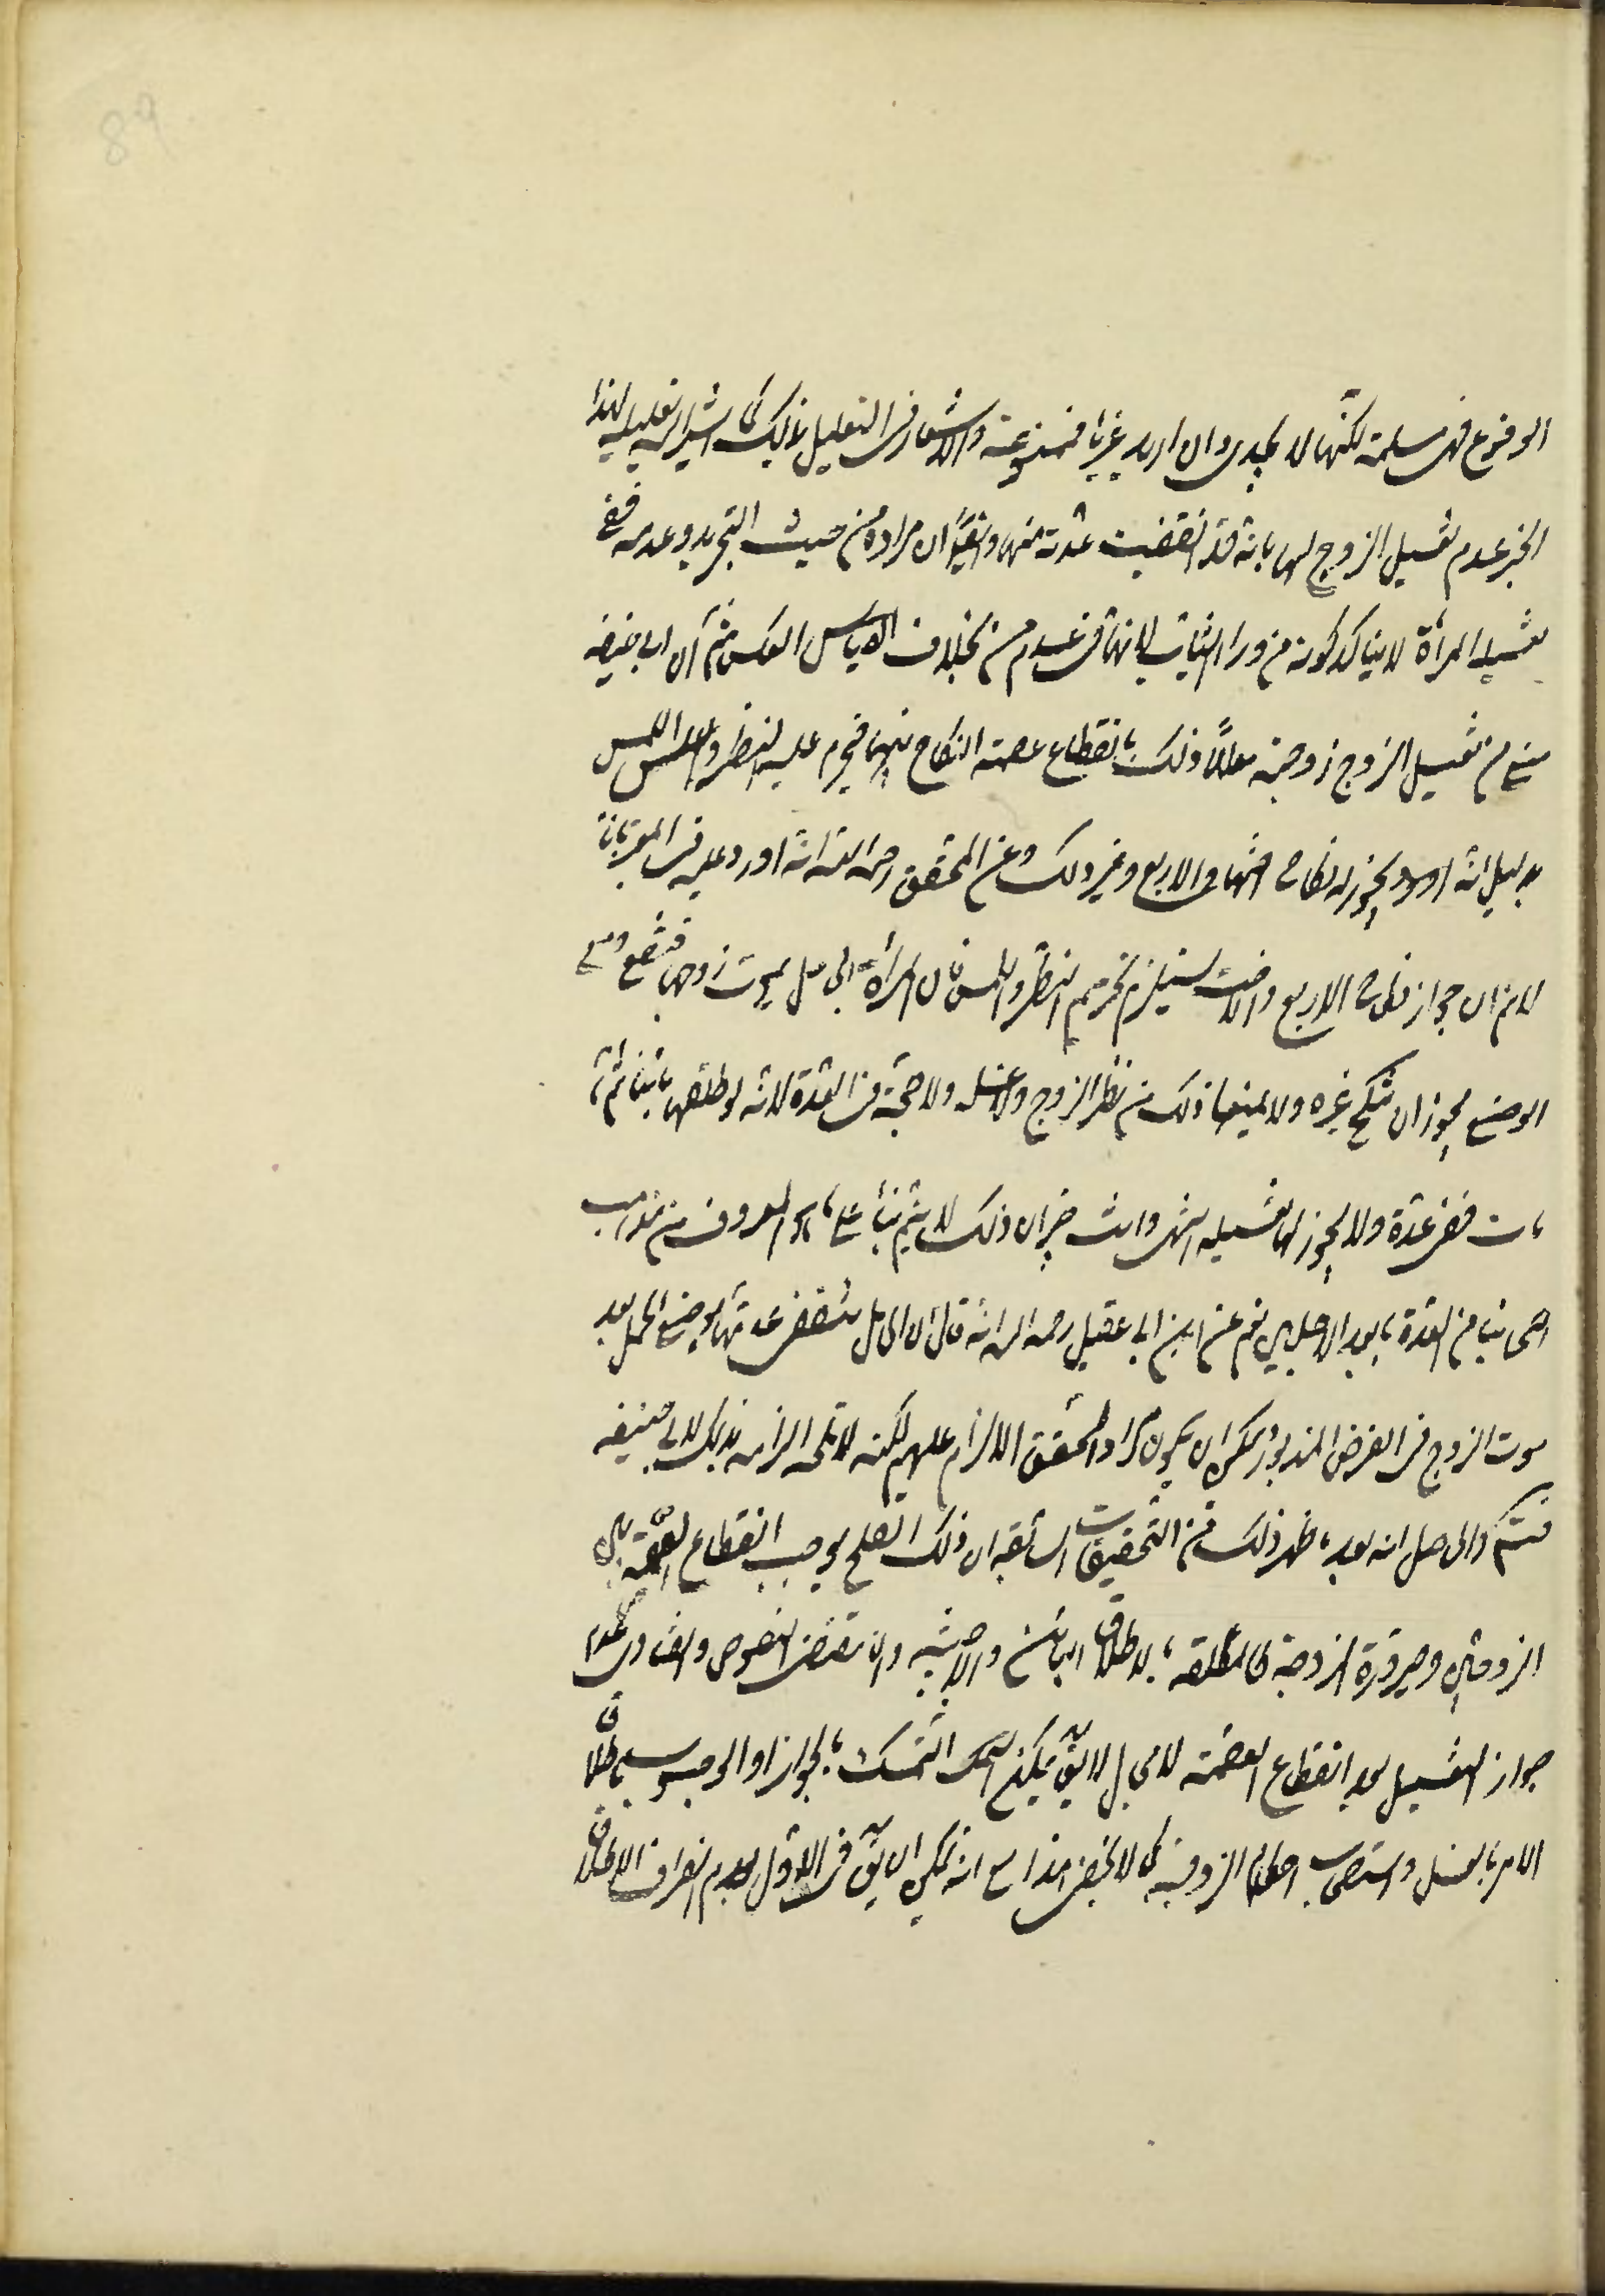 89
الوقوع فهى مسلمة لكنها لا تجدى وان اريد غيرها فممنوعة والاشعار فى التعليل بذلك كما اشير اليه تعليله لهذا
الخبر عدم تغسيل الزوج لها بانه قد انقضت عدته منها وايضا ان مراده من حيث التجريد وعدمه ففى
تغسيل المرأة لا يتأكد كونه من وراء الثياب لانها فى عدم من بخلاف القياس العكس ثم ان ابا حنيفه
منع من تغسيل الزوج زوجته معللا ذلك بانقطاع عصمة النكاح بينهما فيحرم عليه النظر واللمس
بدليل انه يجوز له نكاح اختها والاربع وغير ذلك وعن المحقق رحمه الله انه اورد عليه فى المعتبر بانا
لا نم ان جواز نكاح الاربع والاخت يستلزم تحريم النظر واللمس فان المرأة الحامل يموت زوجها فتضع ومع
الوضع يجوز ان تنكح غيره ولا يمنعها ذلك من نظر الزوج ولا غسله ولا حجة فى العدة لانه لو طلقها بائنا ثم
مات ففى عدة ولا يجوز لها تغسيله انتهى وانت خبير ان ذلك لا يتم بناء على ما هو المعروف من مذهب
اصحابنا من العدة بابعد الاجلين نعم عن ابن ابى عقيل رحمه الله انه قال ان الحامل تنقضى عدتها بوضع الحمل بعد
موت الزوج فى الفرض المذبور يمكن ان يكون مراد المحقق الالزام عليهم لكنه الزامه بذلك لابى حنيفه
فتم والحاصل انه بعد ما ظهر ذلك من التحقيقات السابقه ان ذلك يوجب انقطاع العصمة بين
الزوجين وصيرورة الزوجة كالمطلقه بالطلاق البائن والاجنبيه وان مقتضى النصوص والفتاوى عدم
جواز التغسيل بعد انقطاع العصمة لا مجال لان يق يمكن التمسك بالجواز او الوجوب باطلاق
الامر بالغسل واستصحاب احكام الزوجية كما لا يخفى هذا مع انه يمكن ان يق فى الاول بعدم انصراف الاطلاق